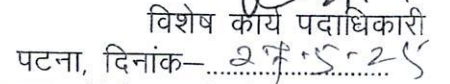 विशेष कार्य पदाधिकारी
पटना, दिनांक– 27-5-25